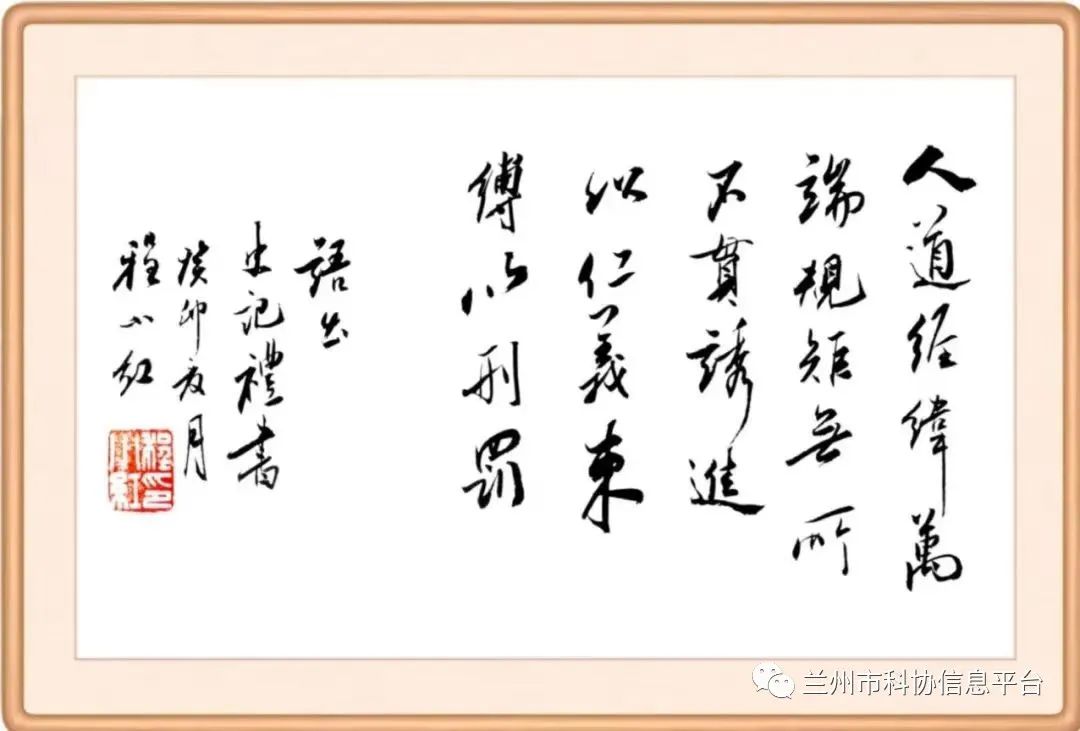 人道經緯萬
端規矩無所
不貫誘進
以仁義束
縛以刑罰
語出
史記禮書
癸卯夏月
程小紅
兰州市科协信息平台